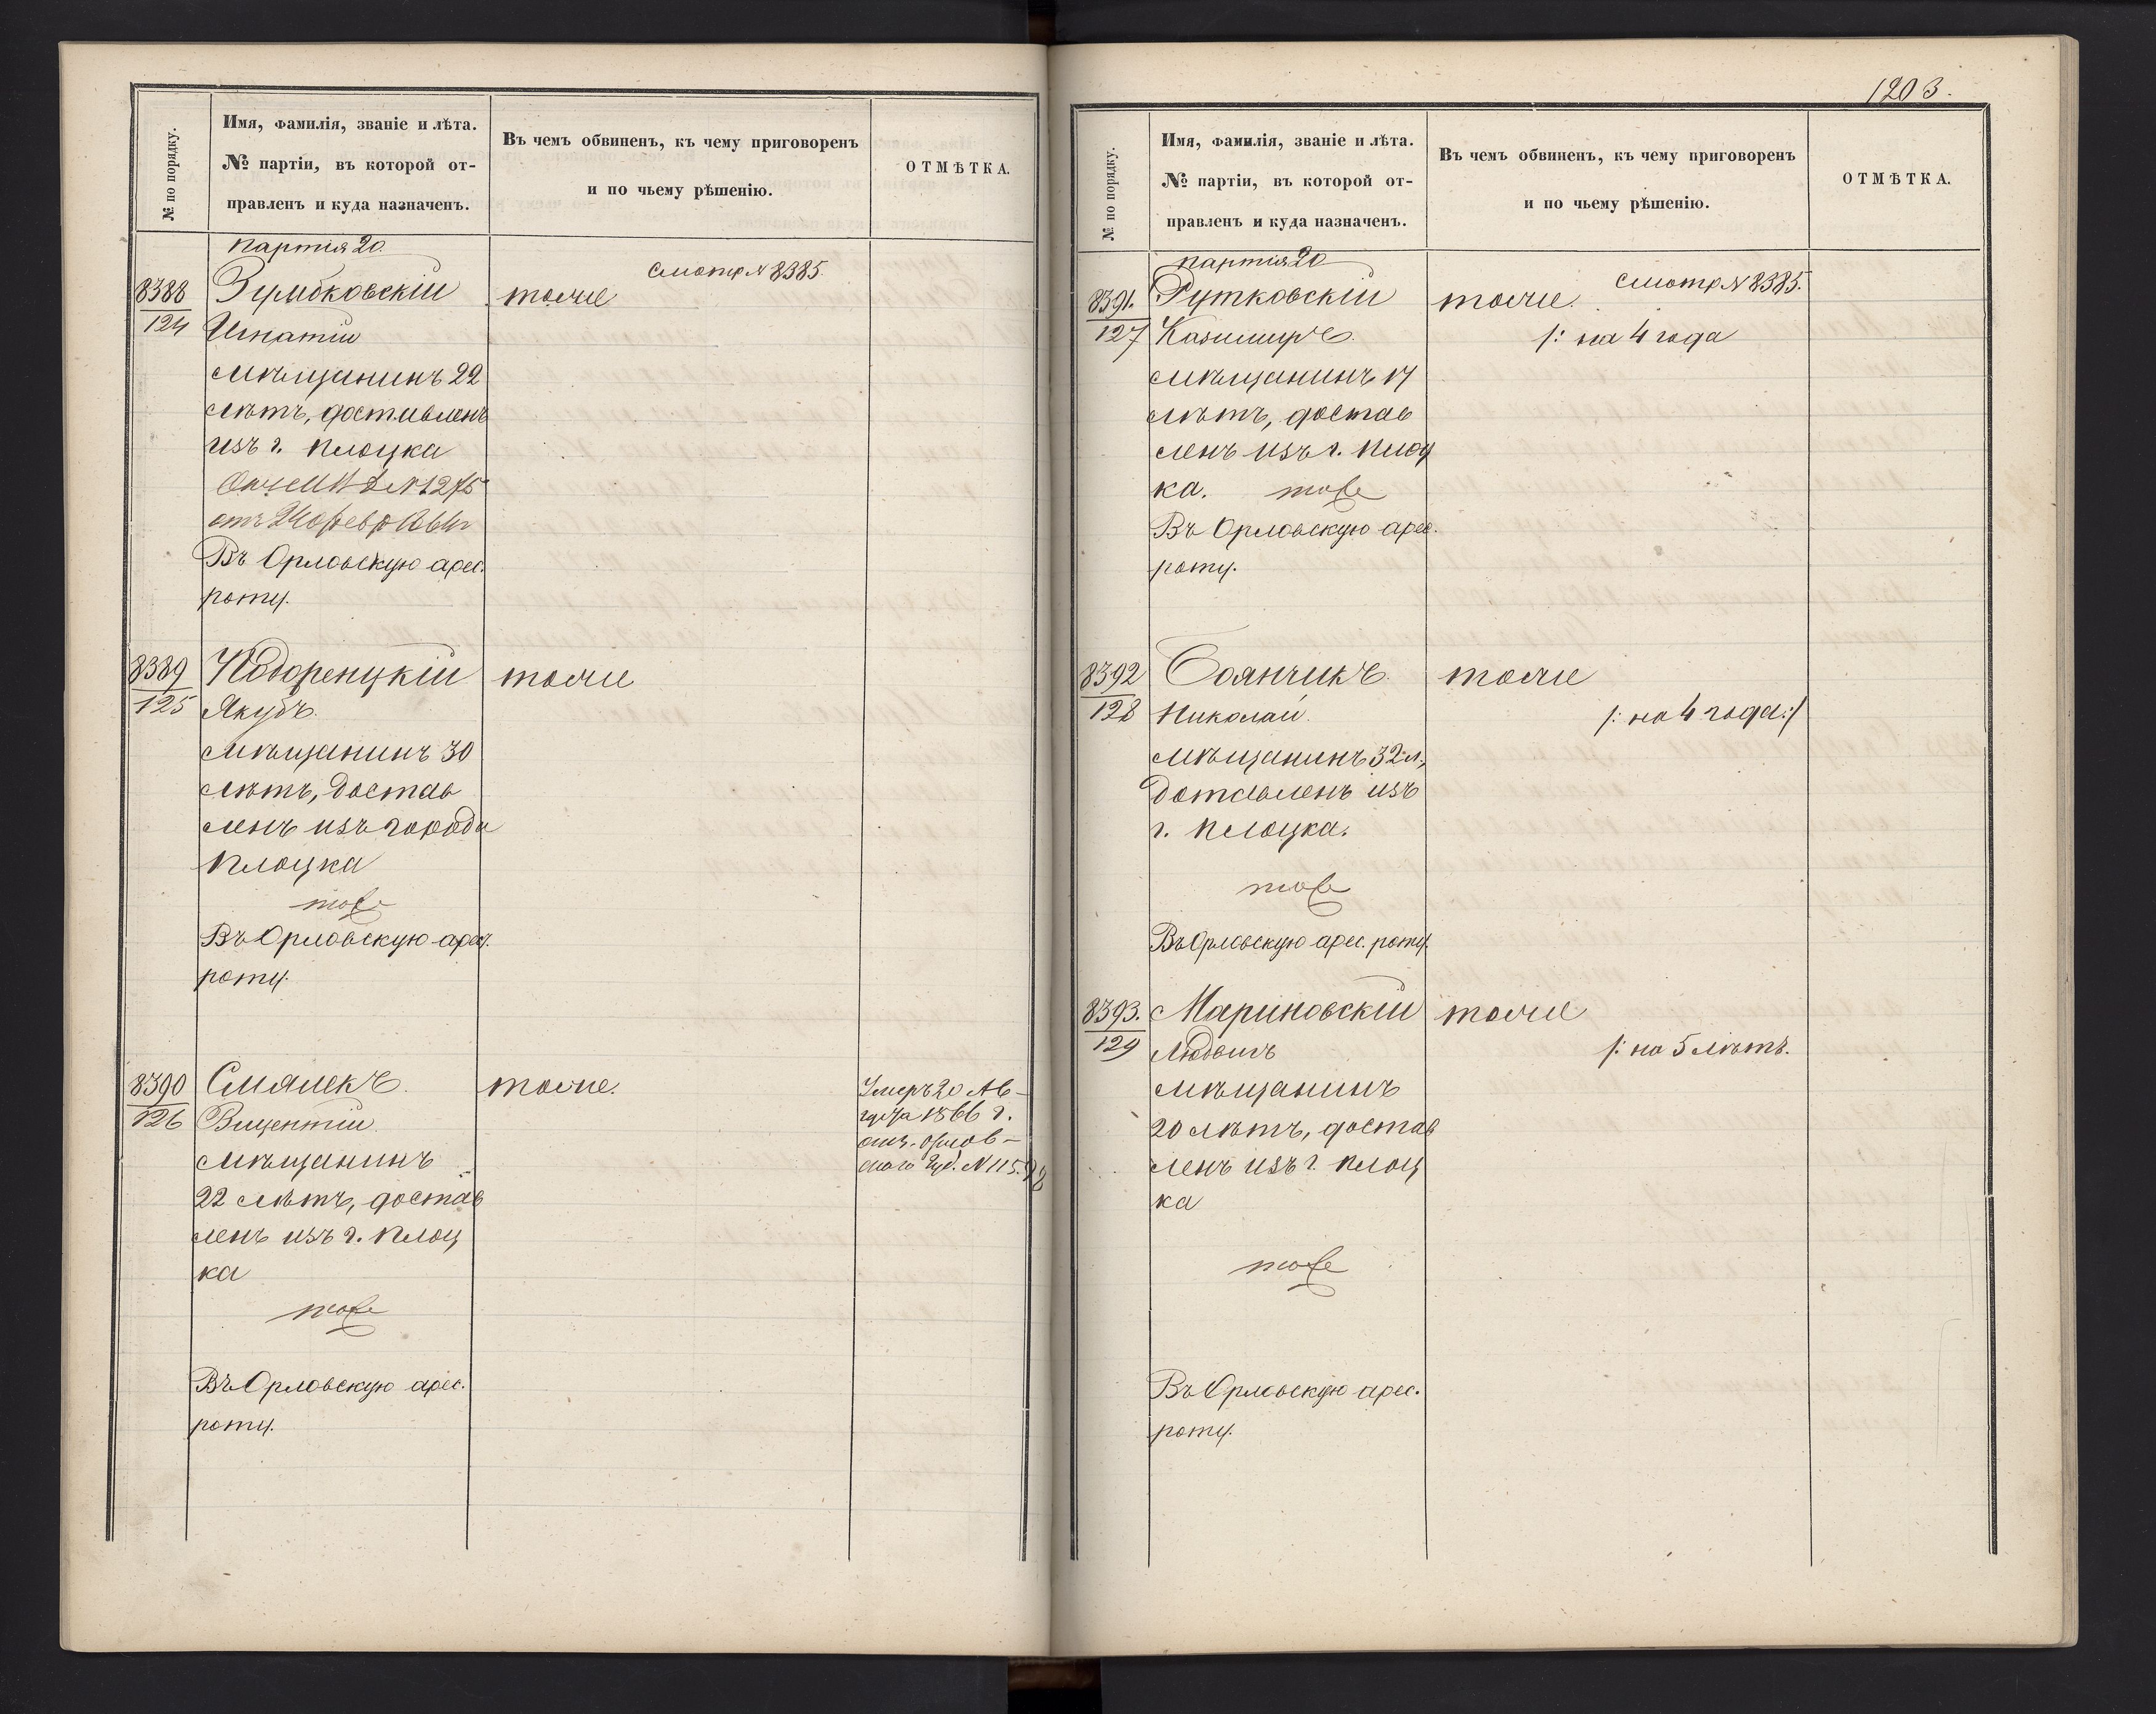 № по порядку.
Имя, фамилія, званіе и лѣта.
№ партіи, въ которой от-
правленъ и куда назначенъ.
Въ чемъ обвиненъ, къ чему приговоренъ
и по чьему рѣшенію.
ОТМѢТКА.
партія 20.
8388
124
Зумбковскій
Игнатій
мѣщанинъ 22
лѣтъ, доставленъ
изъ г. Плоцка
Въ Орловскую арес.
роту.
тоже
смотр № 8385.
8389
125
Якубъ.
мѣщанинъ 30
лѣтъ, достав
ленъ изъ города
Плоцка
тоже
Въ Орловскую арес.
роту.
тоже
8390
126
Смялекъ.
Вицентій
мѣщанинъ
22 лѣтъ, достав
ленъ изъ г. Плоц
ка
тоже
Въ Орловскую арес.
роту.
тоже.
Умеръ 20 Ав-
густа 1866 г.
отн. Орлов-
скаго Губ. №
1203.
№ по порядку.
Имя, фамилія, званіе и лѣта.
№ партіи, въ которой от-
правленъ и куда назначенъ.
Въ чемъ обвиненъ, къ чему приговоренъ
и по чьему рѣшенію.
ОТМѢТКА.
партія 20
8391.
127
Рутковскій
Казимиръ.
мѣщанинъ 17
лѣтъ, достав
ленъ изъ г. Плоц
ка. тоже
Въ Орловскую арес.
роту.
тоже.
смотр № 8385.
/: на 4 года
8392
128
Боянчикъ.
Николай.
мѣщанинъ 32 л.,
дотавленъ изъ
г. Плоцка.
тоже
Въ Орловскую арес. роту.
тоже
/: на 4 года :/
8393.
129
Мариновскій
Людвигъ
мѣщанинъ
20 лѣтъ, достав
ленъ изъ г. Плоц
ка
тоже
Въ Орловскую арес.
роту.
тоже
/: на 5 лѣтъ.